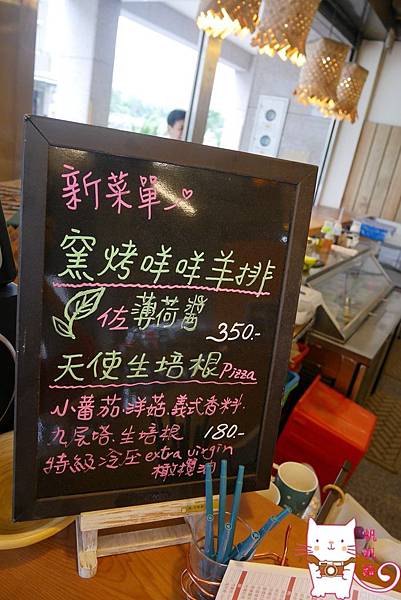 新菜單
窯烤咩咩羊排
佐薄荷醬
350.-
天使生培根Pizza
小蕃茄.洋菇.義式香料.
九层塔.生培根 180.-
特級冷圧extra virgin
橄欖油